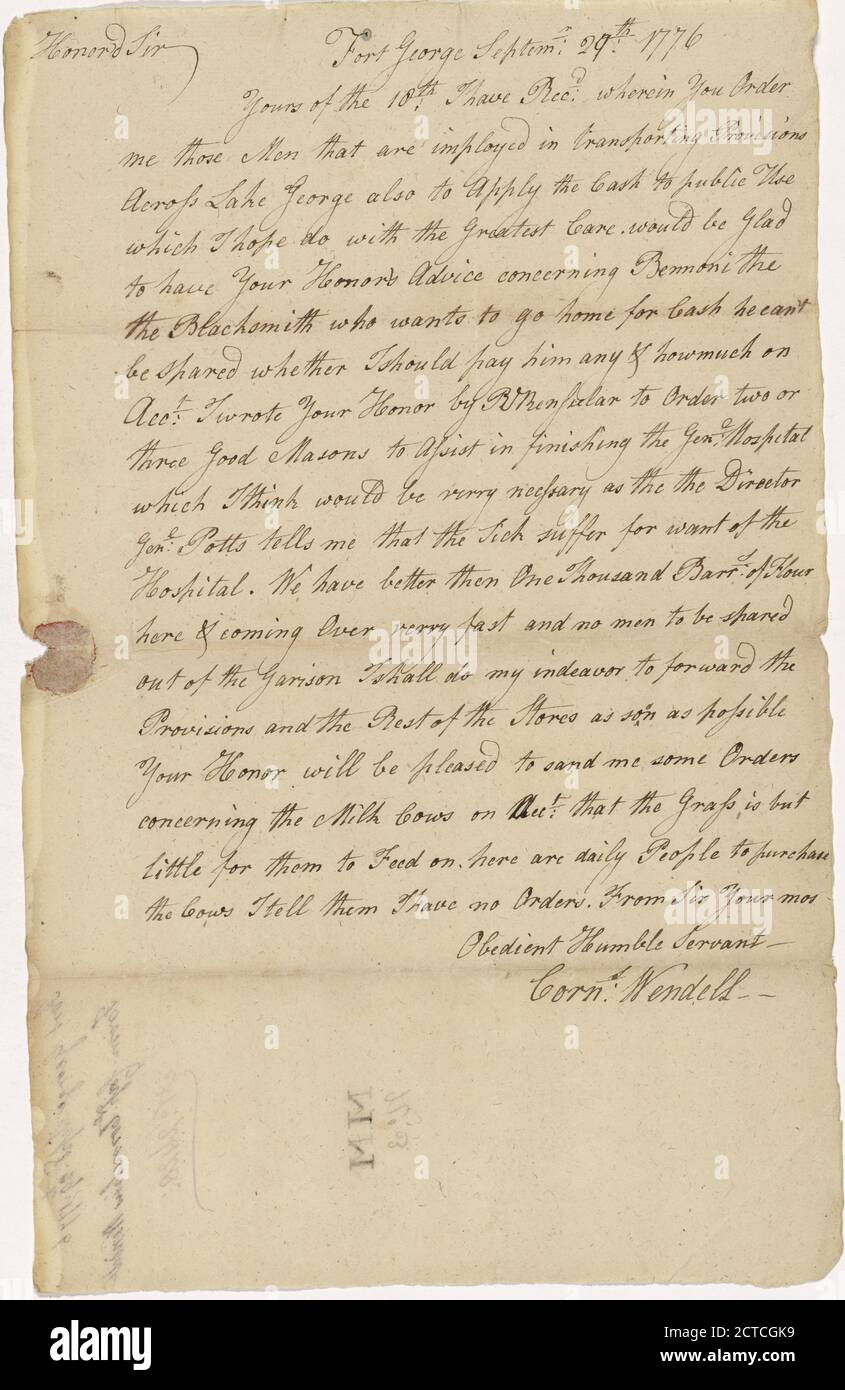 Honord Sir
Fort George Septemr: 29th: 1776
Yours of the 18th: I have Recd: wherein You Order
me those Men that are imployed in transporting Provisions
Across Lake George also to Apply the Cash to public Use
which I hope do with the Greatest Care. would be Glad
to have Your Honors Advice concerning Bennoni the
the Blacksmith who wants to go home for Cash he cant
be spared whether I should pay him any & how much on
Acct: I wrote Your Honor by to Order two or
three Good Masons to Assist in finishing the Genl: Hospital
which I think would be verry necessary as the the Director
Genl: Potts tells me that the Sick suffer for want of the
Hospital. We have better then One Thousand Barrs: of Flour
here & coming Over verry fast and no men to be spared
out of the Garison I shall do my indeavor to forward the
Provisions and the Rest of the Stores as soon as possible
Your Honor will be pleased to sand me some Orders
concerning the Milk Cows on Acct: that the Grass is but
little for them to Feed on. here are daily People to purchase
the Cows I tell them I have no Orders. From Sir Your mos
Obedient Humble Servant
Corns: Wendell
alamy
Image ID: 2CTCGK9
www.alamy.com